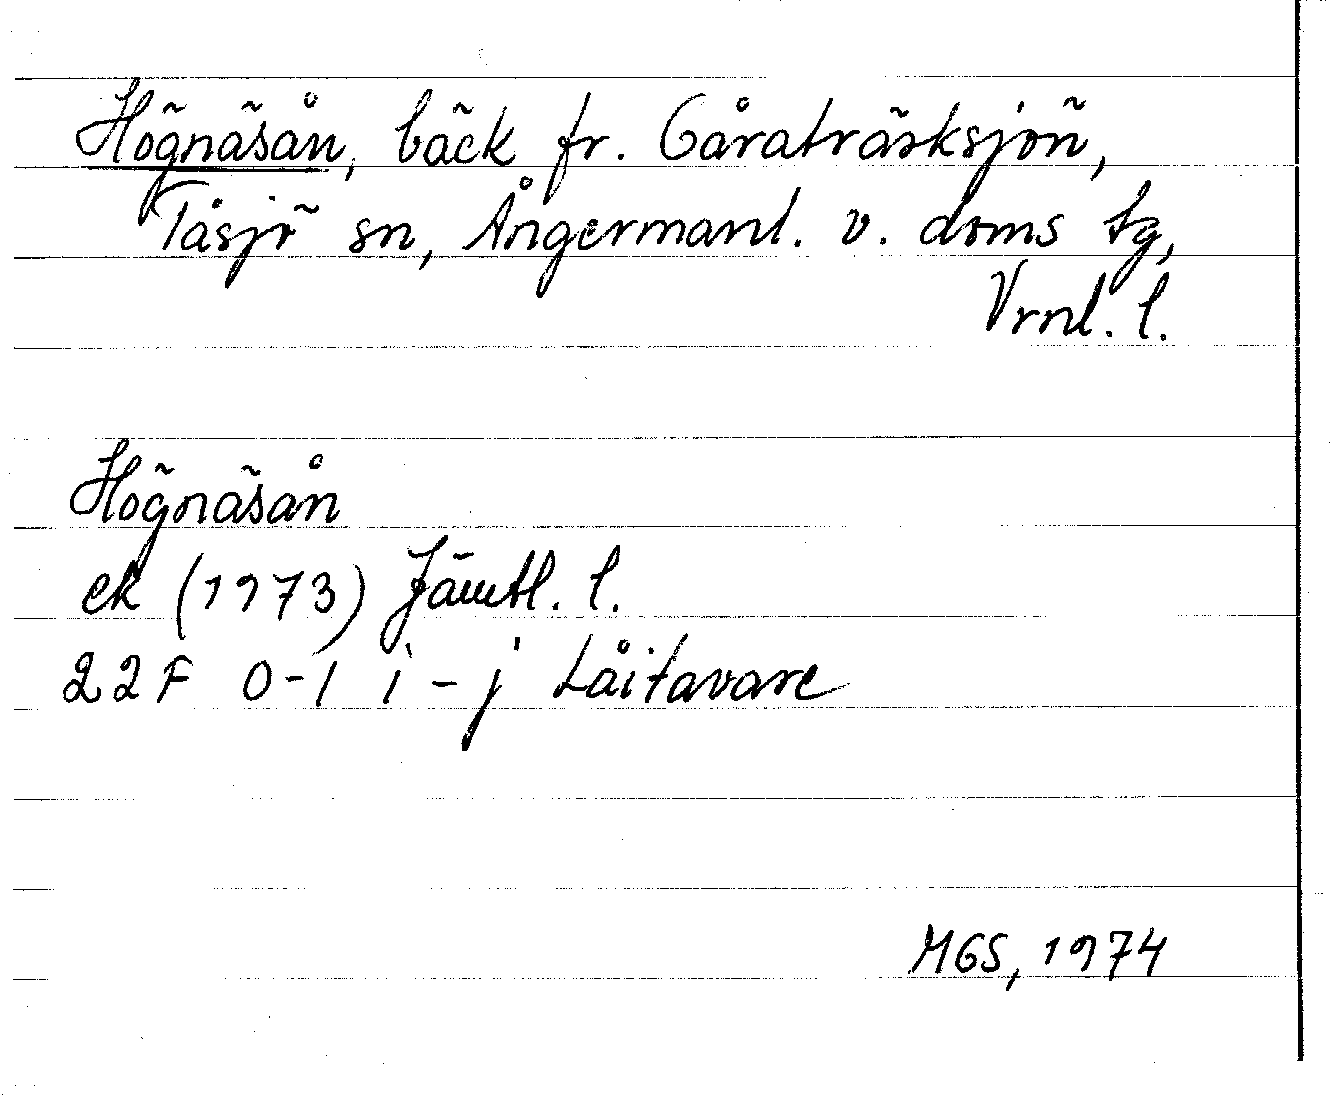 Högnäsån, bäck fr. Gåraträsksjön,
Tåsjö sn, Ångermanl. v. doms tg,
Vrnl. l.
Högnäsån
ek (1973) Jämtl. l.
22F 0-1 i-j Låitavare
MGS, 1974